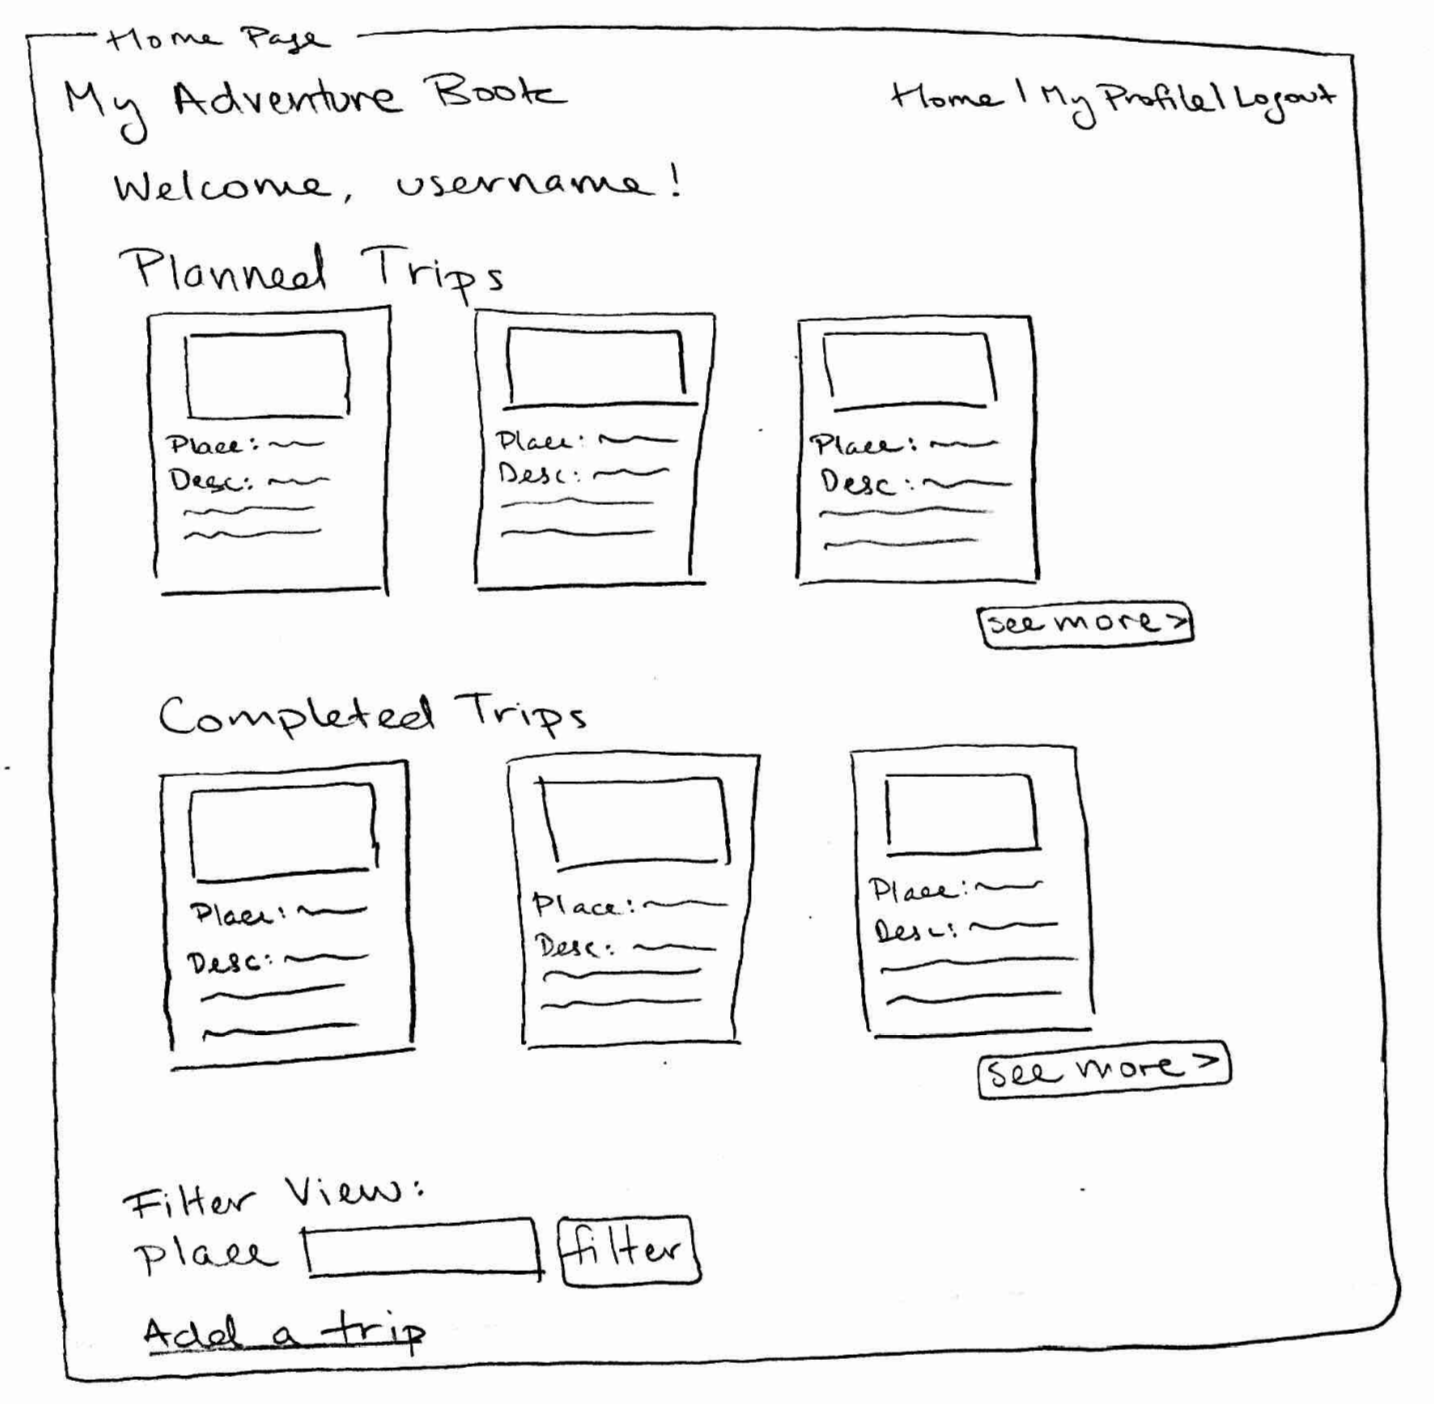 Home Page
My Adventure Book
Home | My Profile | Logout
Welcome, username!
Planned Trips
Place:
Desc:
Place:
Desc:
Place:
Desc:
see more >
Completed Trips
Place:
Desc:
Place:
Desc:
Place:
Desc:
see more >
Filter View:
place
filter
Add a trip